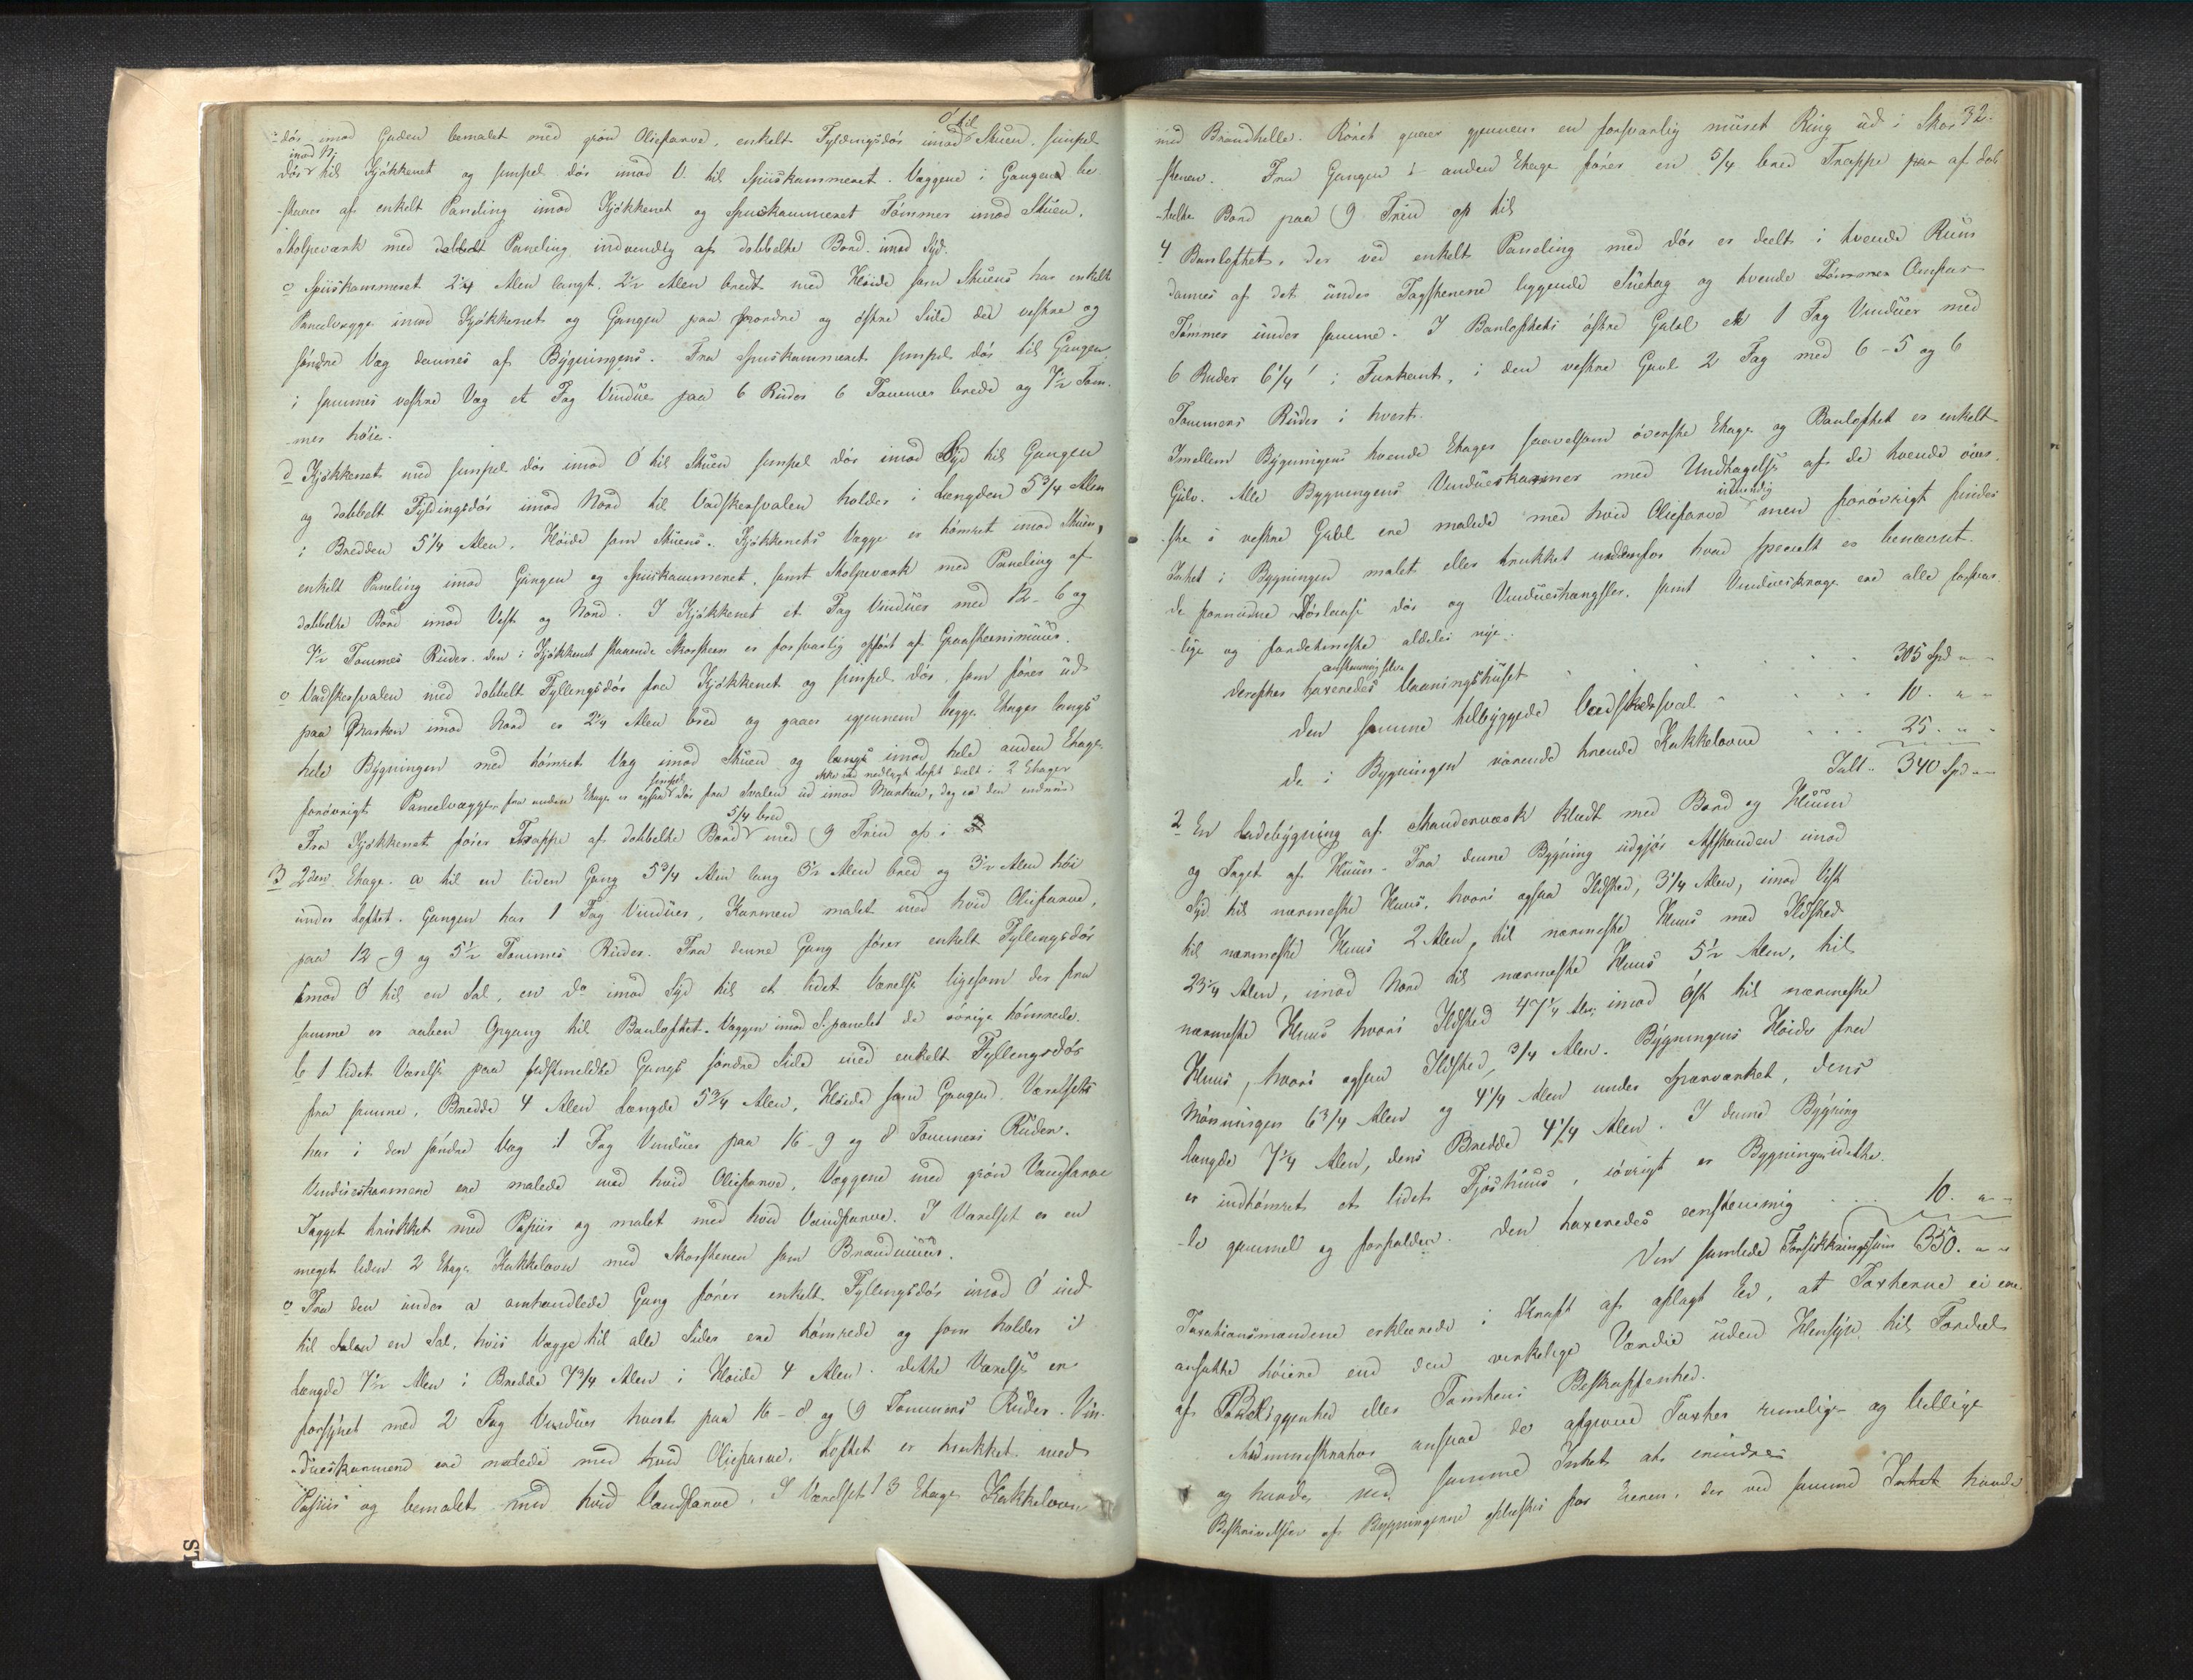 -dør imod Gaden bemalet med grøn Oliefarve, enkelt Fyldingsdør imod Ø til Stuen, simpel
dør imod N. til Kjøkkenet og simpel dør imod V. til Spiiskammeret. Væggene i Gangen be-
-staaer af enkelt Paneling imod Kjøkkenet og Spiiskammeret Tømmer imod Stuen,
Stolpeværk med dobbelt Paneling indvendig af dobbelte Bord imod Syd.
c Spiiskammeret 2 1/4 Alen langt, 2 1/2 Alen bredt med Høide som Stuens har enkelt
Panelvægge imod Kjøkkenet og Gangen paa nordre og østre Side det vestre og
søndre Væg dannes af Bygningens. Fra Spiiskammeret simpel dør til Gangen
i sammes vestre Væg et Fag Vindue paa 6 Ruder 6 Tommer brede og 7 1/2 Tom-
-mer høie.
d Kjøkkenet med simpel dør imod Ø til Stuen simpel dør imod Syd til Gangen
og dobbelt Fyldingsdør imod Nord til Vadskersvalen holder i Længden 5 3/4 Alen
i Bredden 5 1/4 Alen. Høide som Stuens. Kjøkkenets Vægge er tømret imod Stuen,
enkelt Paneling imod Gangen og Spiiskammeret, samt Stolpeværk med Paneling af
dobbelte Bord imod Vest og Nord. I Kjøkkenet et Fag Vinduer med 12 - 6 og
7 1/2 Tommes Ruder. den i Kjøkkenet staaende Skorsteen er forsvarlig opført af Graasteensmuur.
e Vadskersvalen med dobbelt Fyllingsdør fra Kjøkkenet og simpel dør, som fører ud
paa Marken imod Nord er 2 1/4 Alen bred og gaaer igjennem begge Etager langs
hele Bygningen med tømret Væg imod Stuen og langs imod hele anden Etage
forøvrigt Panelvægge, fra anden Etage er ogsaa simpel dør fra Svalen ud imod Marken, dog er den endnu ikke ved nedlagt Loft deelt i 2 Etager
Fra Kjøkkenet fører Trappe af dobbelte Bord 5/4 bred med 9 Trin op i
3 2den Etage. a til en liden Gang 5 3/4 Alen lang 3 1/2 Alen bred og 3 1/2 Alen høi
under Loftet. Gangen har 1 Fag Vinduer, Karmen malet med hvid Oliefarve,
paa 12 - 9 og 5 1/2 Tommes Ruder. Fra denne Gang fører enkelt Fyllingsdør
imod Ø til en Sal, en do imod Syd til et lidet Værelse ligesom der fra
samme er aaben Opgang til Banloftet. Væggen imod S. panelet de øvrige tømrede.
b 1 lidet Værelse paa sidstmeldte Gangs søndre Side med enkelt Fyllingsdør
fra samme. Bredde 4 Alen Længde 5 3/4 Alen, Høide som Gangen. Værelset
har i den søndre Væg 1 Fag Vinduer paa 16 - 9 og 8 Tommers Ruder.
Vindueskarmene ere malede med hvid Oliefarve, Væggene med grøn Vandfarve
Taget trukket med Papiir og malet med hvid Vandfarve. I Værelset er en
meget liden 2 Etages Kakkelovn med Skorstenen som Brandmuur.
c Fra den under a omhandlede Gang fører enkelt Fyllingsdør imod Ø ind
til Salen en Sal, hvis Vægge til alle Sider ere tømrede og som holder i
Længde 7 1/2 Alen i Bredde 7 3/4 Alen i Høide 4 Alen. dette Værelse er
forsynet med 2 Fag Vinduer hvert paa 16 - 8 og 9 Tommers Ruder. Vin-
-dueskarmene ere malede med hvid Oliefarve, Loftet er trukket med
Papiir og bemalet med hvid Vandfarve. I Værelset 1 3 Etages Kakkelovn
32.
med Brandhelle. Røret gaaer gjennem en forsvarlig muret Ring ud i Skor-
stenen. Fra Gangen i anden Etage fører en 5/4 bred Trappe af dob-
-belte Bord paa 9 Trin op til
4 Banloftet, der ved enkelt Paneling med dør er deelt i tvende Rum
dannes af det under Tagstenene liggende Sutag og tvende Tømmer
Tømmer under samme. I Banloftets østre Gavl et 1 Fag Vinduer med
6 Ruder 6 1/4' i Fiirkant, i den vestre Gavl 2 Fag med 6 - 5 og 6
Tommers Ruder i hvert.
Imellem Bygningens tvende Etager saavelsom øverste Etage og Banloftet er enkelt
Gulv. Alle Bygningens Vindueskarmer med Undtagelse af de tvende øver-
ste i vestre Gavl ere malede med hvid Oliefarve udvendig men forøvrigt findes
Intet i Bygningen malet eller trukket udenfor hvad specielt er benævnt.
de fornødne Dørlaase dør og Vindueshængsler, samt Vinduesrkroge ere alle forsvar-
-lige og fordetmeste aldeles nye.
derefter taxeredes eenstemmig selve Vaaningshuset . . . . . 305 Spd " "
den samme tilbyggede Vadskersval . . . . 10. " "
de i Bygningen værende tvende Kakkelovne . . . 25. " "
Ialt .. 340 Spd " "
2 En Ladebygning af Stenderværk klædt med Bord og Huun
og Taget af Huun. Fra denne Bygning udgjør Afstanden imod
Syd til nærmeste Huus, hvori ogsaa Ildsted, 3 1/4 Alen, imod Vest
til nærmeste Huus 2 Alen, til nærmeste Huus med Ildsted
23 1/4 Alen, imod Nord til nærmeste Huus 5 1/2 Alen, til
nærmeste Huus hvori Ildsted 47 1/4 Al. imod Øst til nærmeste
Huus, hvori ogsaa Ildsted, 3/4 Alen. Bygningens Høide fra
Mønningen 6 3/4 Alen og 4 1/4 Alen under Sparværket, dens
Længde 7 1/4 Alen, dens Bredde 4 1/4 Alen. I denne Bygning
er indtømret et lidet Fjøshuus, iøvrigt er Bygningen
gammel og forfalden. den taxeredes eenstemmig . . . . 10. " "
Den samlede Forsikkringssum 350. " "
Taxationsmændene erklærede i Kraft af aflagt Ed, at Taxterne ei ere
ansatte høiere end den virkelige Værdie uden Hensyn til Fordeel
af Beliggenhed eller Tomtens Beskaffenhed.
Administrator ansaae de afgivne Taxter rimelige og billige
og havde ved samme Intet at erindre
Beskrivelsen af Bygningerne oplæstes for Eieren, der ved samme Intet havde